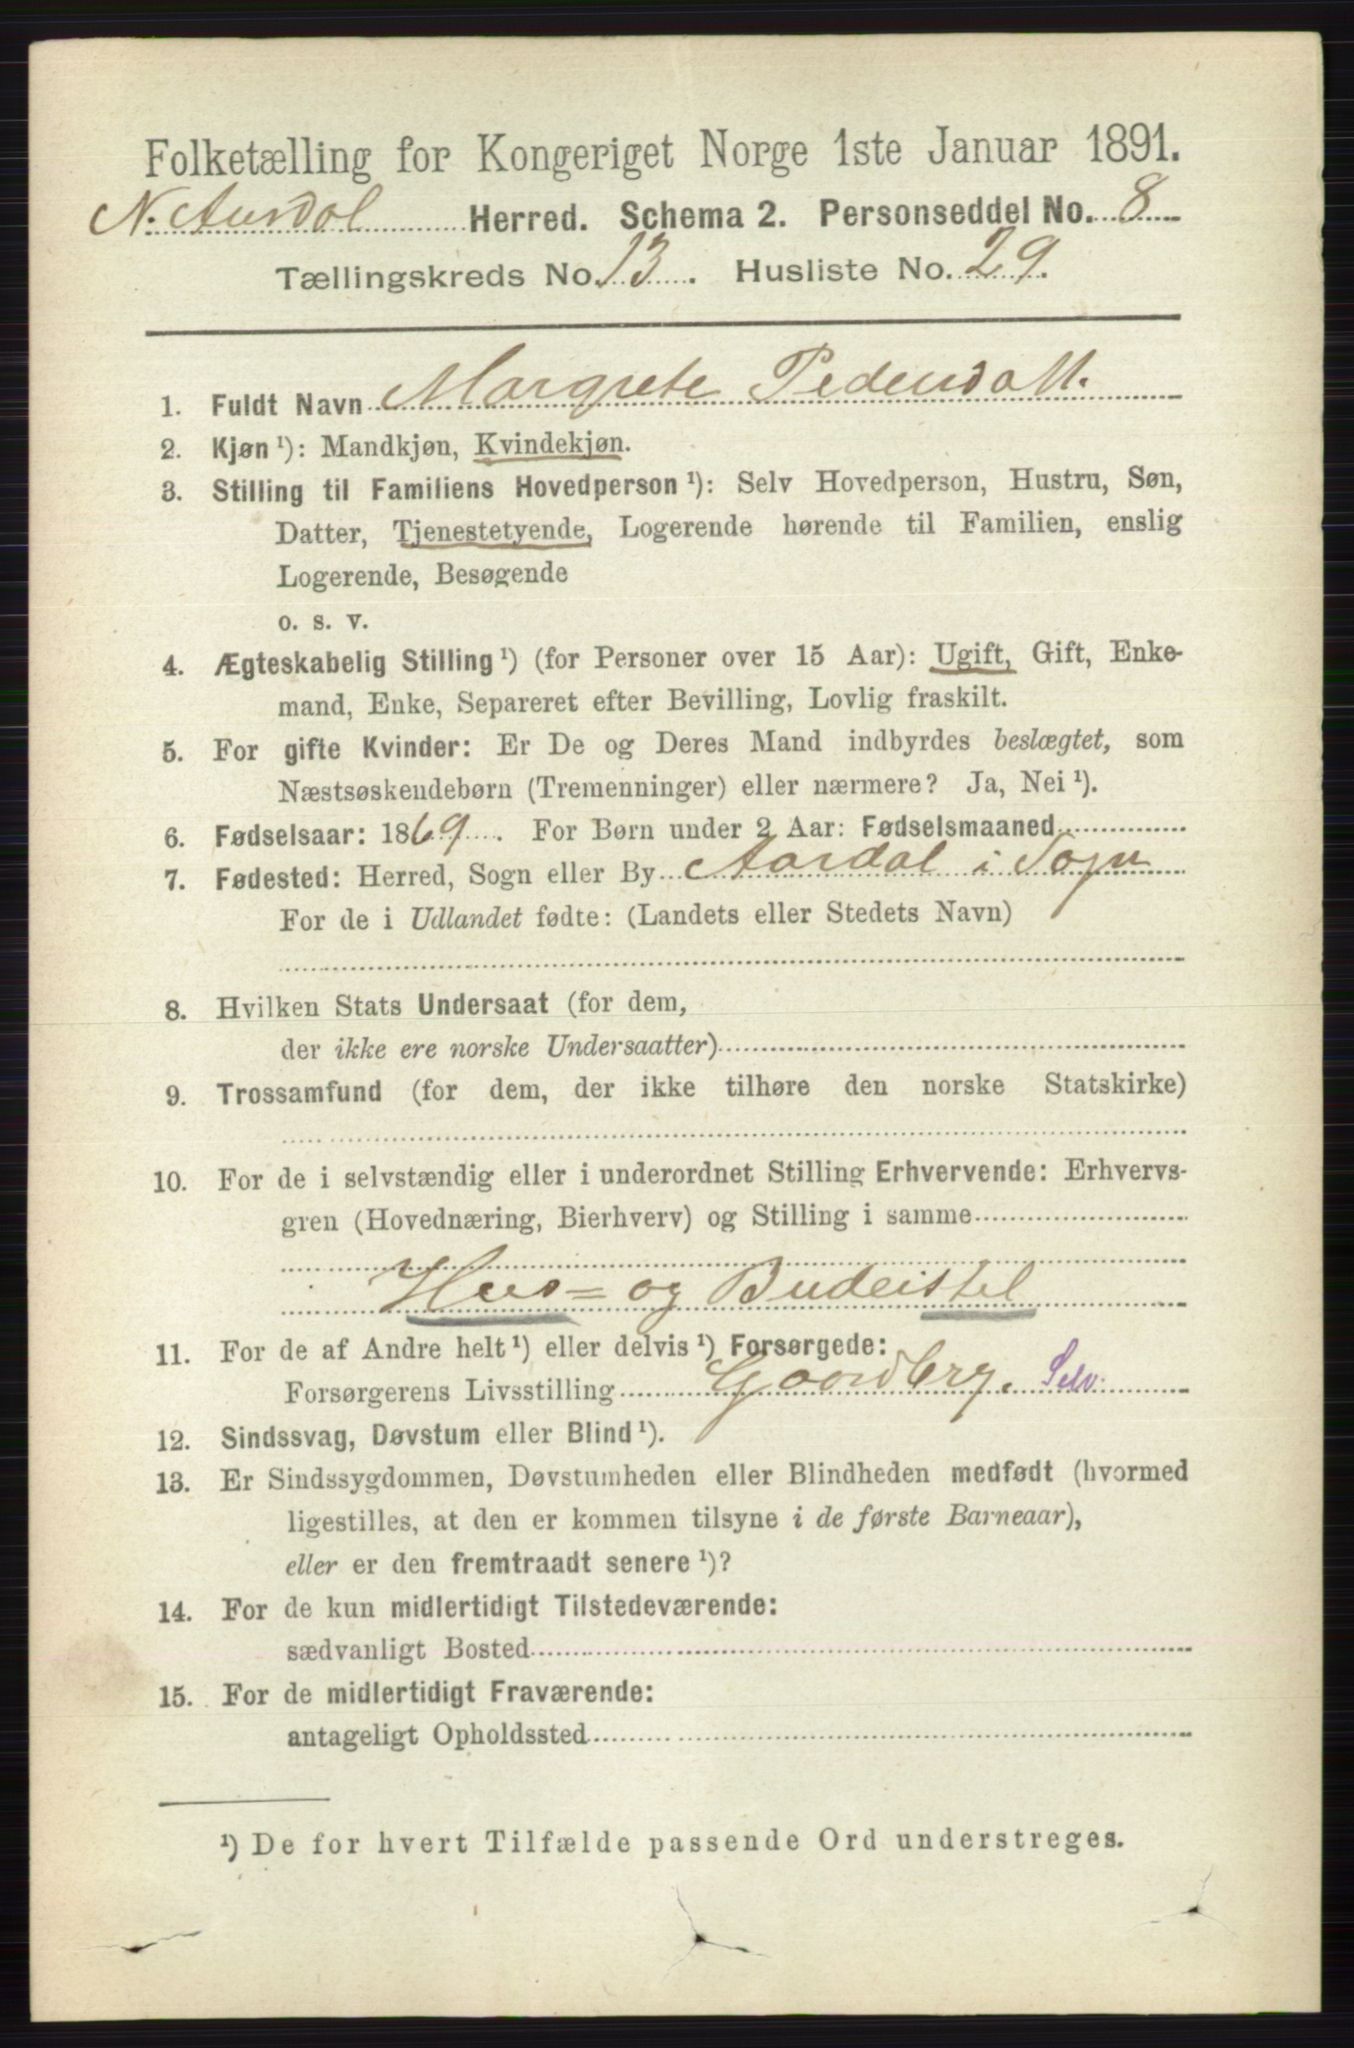 Folketælling for Kongeriget Norge 1ste Januar 1891.
N. Aurdal Herred. Schema 2. Personseddel No. 8
Tællingskreds No. 13. Husliste No. 29.
1. Fuldt Navn Margrete Pedersdatt.
2. Kjøn ¹): Mandkjøn, Kvindekjøn.
3. Stilling til Familiens Hovedperson ¹): Selv Hovedperson, Hustru, Søn,
Datter, Tjenestetyende, Logerende hørende til Familien, enslig
Logerende, Besøgende
o. s. v.
4. Ægteskabelig Stilling ¹) (for Personer over 15 Aar): Ugift, Gift, Enke-
mand, Enke, Separeret efter Bevilling, Lovlig fraskilt.
5. For gifte Kvinder: Er De og Deres Mand indbyrdes beslægtet, som
Næstsøskendebørn (Tremenninger) eller nærmere? Ja, Nei ¹).
6. Fødselsaar: 1869. For Børn under 2 Aar: Fødselsmaaned
7. Fødested: Herred, Sogn eller By Aardal i Sogn
For de i Udlandet fødte: (Landets eller Stedets Navn)
8. Hvilken Stats Undersaat (for dem,
der ikke ere norske Undersaatter)
9. Trossamfund (for dem, der ikke tilhøre den norske Statskirke)
10. For de i selvstændig eller i underordnet Stilling Erhvervende: Erhvervs-
gren (Hovednæring, Bierhverv) og Stilling i samme
Hus= og Budeistel
11. For de af Andre helt ¹) eller delvis ¹) Forsørgede:
Forsørgerens Livsstilling Gaardbrg. Selv.
12. Sindssvag, Døvstum eller Blind ¹).
13. Er Sindssygdommen, Døvstumheden eller Blindheden medfødt (hvormed
ligestilles, at den er kommen tilsyne i de første Barneaar),
eller er den fremtraadt senere ¹)?
14. For de kun midlertidigt Tilstedeværende:
sædvanligt Bosted
15. For de midlertidigt Fraværende:
antageligt Opholdssted
¹) De for hvert Tilfælde passende Ord understreges.